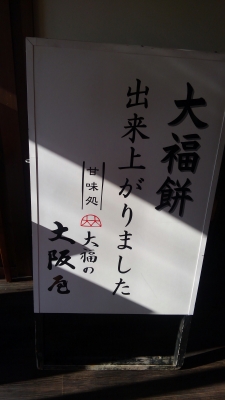 大福餅
出来上がりました
甘味処
大福の
大阪屋